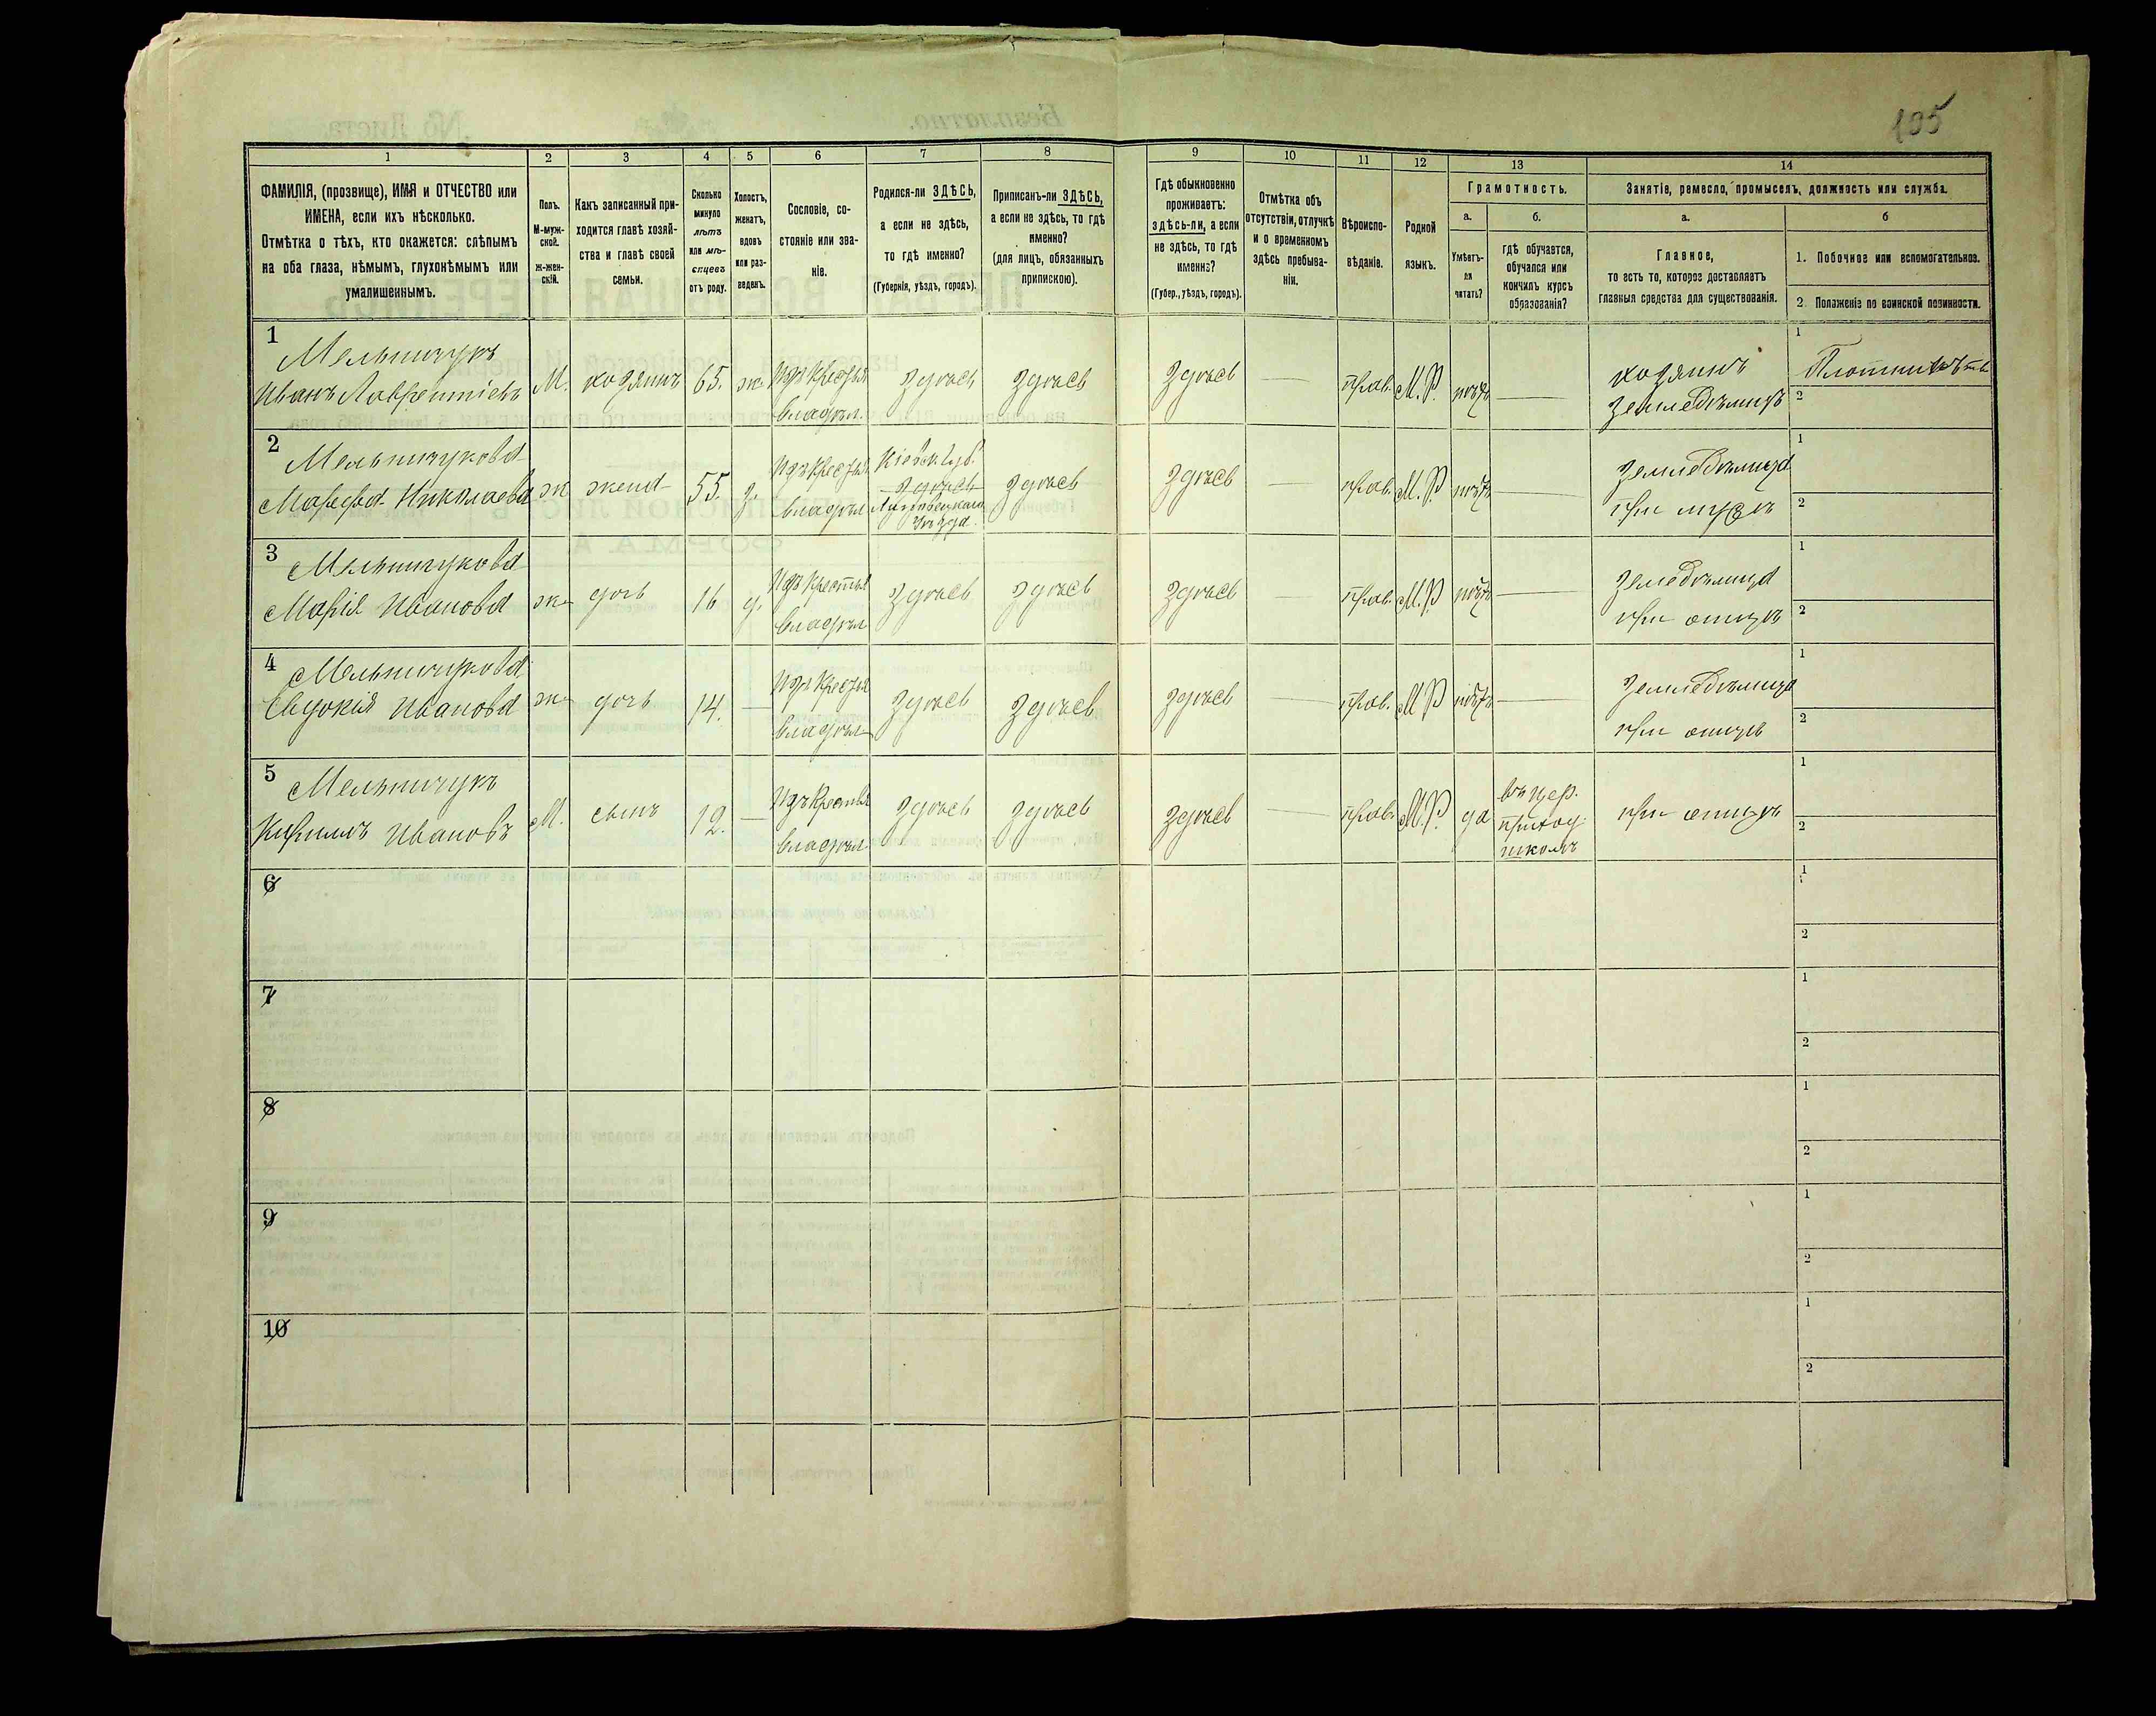 105
1 2 3 4 5 6 7 8 9 10 11 12 13 14
ФАМИЛІЯ, (прозвище), ИМЯ и ОТЧЕСТВО или
ИМЕНА, если ихъ нѣсколько.
Отмѣтка о тѣхъ, кто окажется: слѣпымъ
на оба глаза, нѣмымъ, глухонѣмымъ или
умалишеннымъ.
Полъ.
М-муж-
ской.
ж-жен-
скій.
Какъ записанный при-
ходится главѣ хозяй-
ства и главѣ своей
семьи.
Сколько
минуло
лѣтъ
или мѣ-
сяцевъ
отъ роду.
Холостъ,
женатъ,
вдовъ
или раз-
веденъ.
Сословіе, со-
стояніе или зва-
ніе.
Родился-ли ЗДѢСЬ,
а если не здѣсь,
то гдѣ именно?
(Губернія, уѣздъ, городъ).
Приписанъ-ли ЗДѢСЬ,
а если не здѣсь, то гдѣ
именно?
(для лицъ, обязанныхъ
припискою).
Гдѣ обыкновенно
проживаетъ:
здѣсь-ли, а если
не здѣсь, то гдѣ
именно?
(Губер., уѣздъ, городъ).
Отмѣтка объ
отсутствіи, отлучкѣ
и о временномъ
здѣсь пребыва-
ніи.
Вѣроиспо-
вѣданіе.
Родной
языкъ.
Грамотность.
а.
Умѣетъ-
ли
читать?
б.
гдѣ обучается,
обучался или
кончилъ курсъ
образованія?
Занятіе, ремесло, промыселъ, должность или служба.
а.
Главное,
то есть то, которое доставляетъ
главныя средства для существованія.
б
1. Побочное или вспомогательное.
2. Положеніе по воинской повинности.
1
Мельничукъ
Иванъ Лаврентіевъ
М.
хозяинъ
65.
ж
Изъ Крестья
владѣл.
здѣсь
здѣсь
здѣсь
прав.
М.Р.
нѣтъ
хозяинъ
Земледѣлецъ
1
2
2
Мельничукова
Николаева
ж
жена
55.
Изъ Крестья
владѣл
Кіевск. губ.
здѣсь
Липовецкаго
Уѣзда.
здѣсь
здѣсь
прав.
М.Р.
нѣтъ
Земледѣлица
при мужѣ
1
2
3
Мельничукова
Марія Иванова
ж
дочь
16
д.
Изъ Крестья
владѣл
здѣсь
здѣсь
здѣсь
прав.
М.Р.
нѣтъ
Земедѣлица
при отцѣ
1
2
4
Мельничукова
Евдокія Иванова
ж
дочь
14.
Изъ Крестья
владѣл
здѣсь
здѣсь
здѣсь
прав.
М.Р
нѣтъ
Земледѣлица
при отцѣ
1
2
5
Мельничукъ
Кирилъ Ивановъ
М.
сынъ
12.
Изъ Крестья
владѣл
здѣсь
здѣсь
здѣсь
прав.
М.Р.
да
въ цер.
приход.
школѣ
при отцѣ
1
2
6
1
2
7
1
2
8
1
2
9
1
2
10
1
2